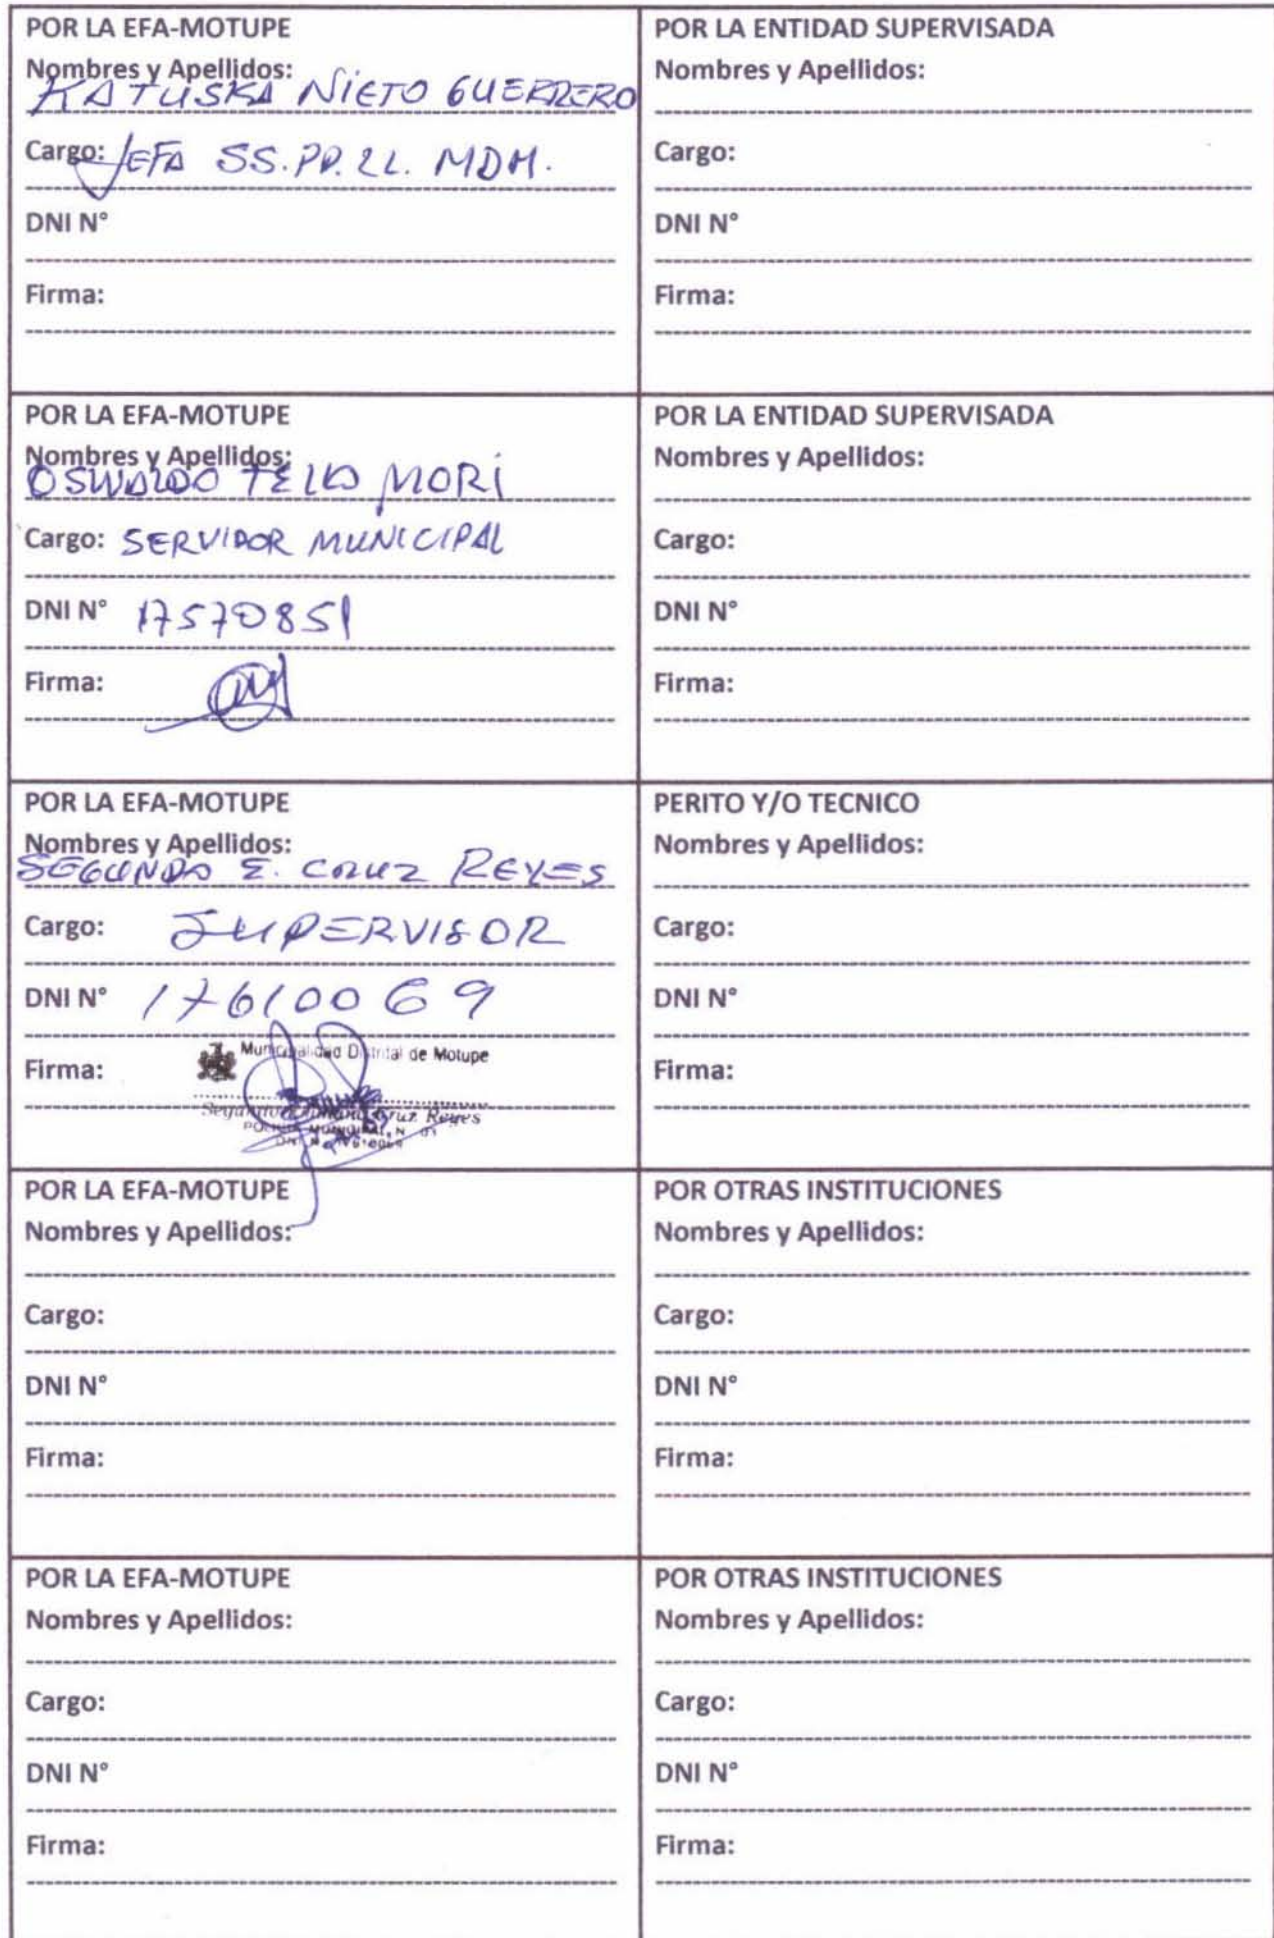 POR LA EFA-MOTUPE
Nombres y Apellidos:
KATUSKA NIETO GUERRERO
Cargo: JEFA SS.PP.LL. MDM.
DNI N°
Firma:
POR LA ENTIDAD SUPERVISADA
Nombres y Apellidos:
Cargo:
DNI N°
Firma:
POR LA EFA-MOTUPE
Nombres y Apellidos:
OSWALDO TELLO MORI
Cargo: SERVIDOR MUNICIPAL
DNI N° 17570851
Firma:
POR LA ENTIDAD SUPERVISADA
Nombres y Apellidos:
Cargo:
DNI N°
Firma:
POR LA EFA-MOTUPE
Nombres y Apellidos:
SEGUNDO E. CRUZ REYES
Cargo: SUPERVISOR
DNI N° 17610069
Firma:
Municipalidad Distrital de Motupe
Segundo Cruz Reyes
POLICIA MUNICIPAL N 01
PERITO Y/O TECNICO
Nombres y Apellidos:
Cargo:
DNI N°
Firma:
POR LA EFA-MOTUPE
Nombres y Apellidos:
Cargo:
DNI N°
Firma:
POR OTRAS INSTITUCIONES
Nombres y Apellidos:
Cargo:
DNI N°
Firma:
POR LA EFA-MOTUPE
Nombres y Apellidos:
Cargo:
DNI N°
Firma:
POR OTRAS INSTITUCIONES
Nombres y Apellidos:
Cargo:
DNI N°
Firma: